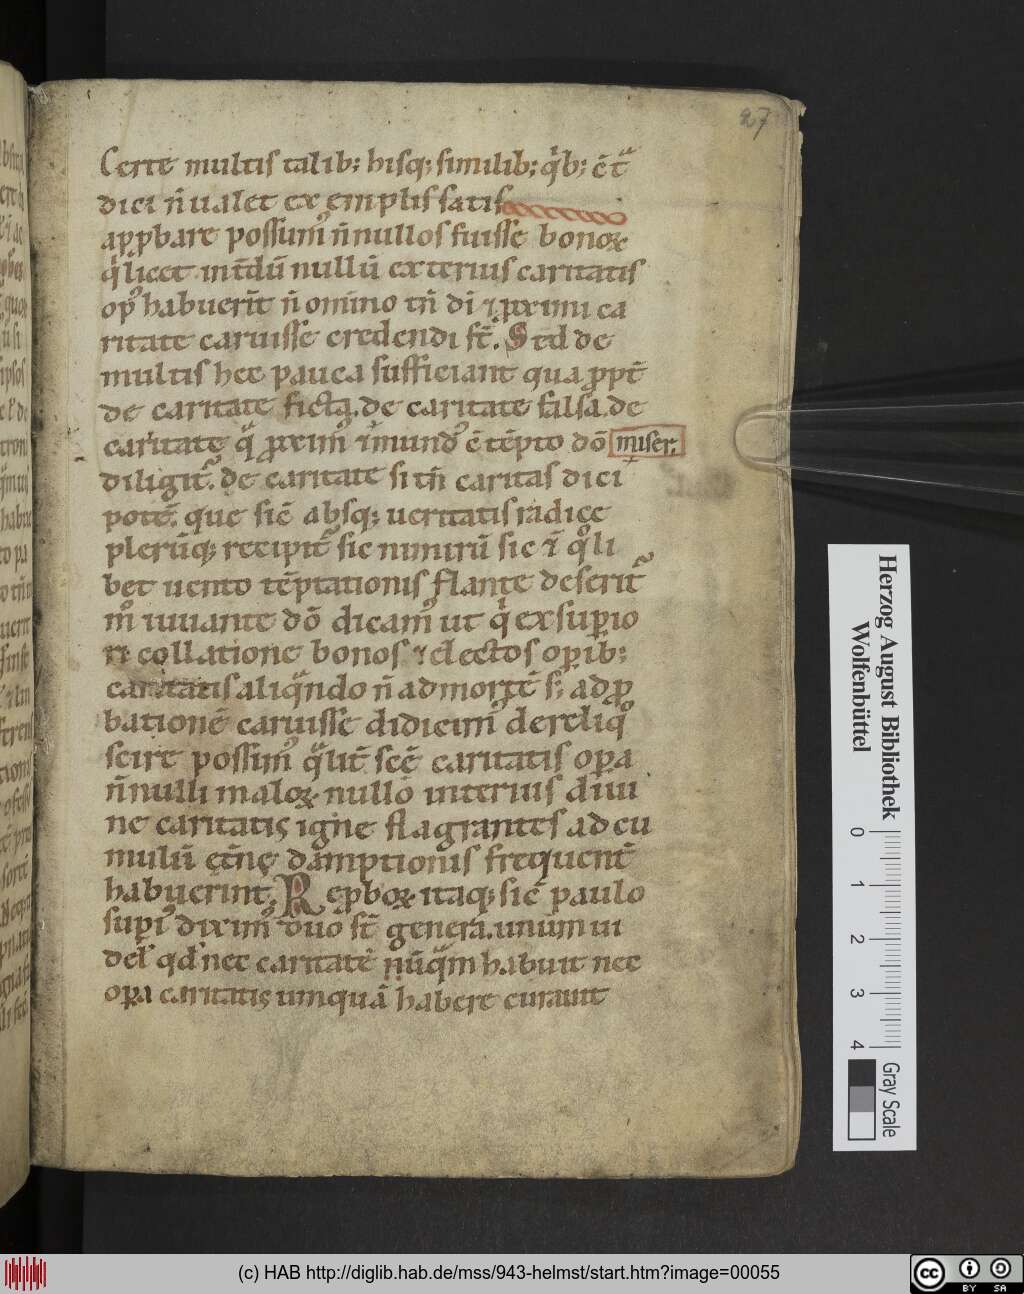 27
Certe multis talib; hisq; similib; q̾b; ē t̄
dici n̄ ualet exemplis satis
app̱bare possum᾽ n̄nullos fuisse bonoꝝ
q̇ licet int̄dū nullū exterius caritatis
op᾽ habuerīt n̄ omīno tn̄ dī ⁊ p̱ximi ca
ritate caruisse credendi st̄. Sed de
multis hec pauca sufficiant qua p̱pt̄
de caritate ficta. de caritate falsa. de
caritate q̄ p̱xim᾽ īmund᾽ ē tēpto dō miser.
diligit᾽. de caritate si tn̄ caritas dici
potē. que sic absq; ueritatis radice
plerūq; recipit᾽ sic nimirū sic ⁊ q᾽li
bet uento tēptationis flante deserit᾽
m̊ iuuante dō dicam᾽ ut q̇ ex supio
ri collatione bonos ⁊ electos opib;
caritatis aliqn̄do n̄ ad mortē s; ad p̱
bationē caruisse didicim᾽ de reliq᾽
scire possim᾽ q̄lit̄ scē caritatis opa
n̄nulli maloꝝ nullo interius diui
ne caritatis igne flagrantes ad cu
mulū ęt̄nę dāmptionis frequent̄
habuerint. Rep̱boꝝ itaq; sic paulo
supi᾽ dixim᾽ duo st̄ genera. unum ui
del᾽ qd᾽ nec caritatē nūq̄m habuit nec
opa caritatis umquā habere curauit
Herzog August Bibliothek
Wolfenbüttel
0 1 2 3 4
Gray Scale
(c) HAB http://diglib.hab.de/mss/943-helmst/start.htm?image=00055
cc BY SA